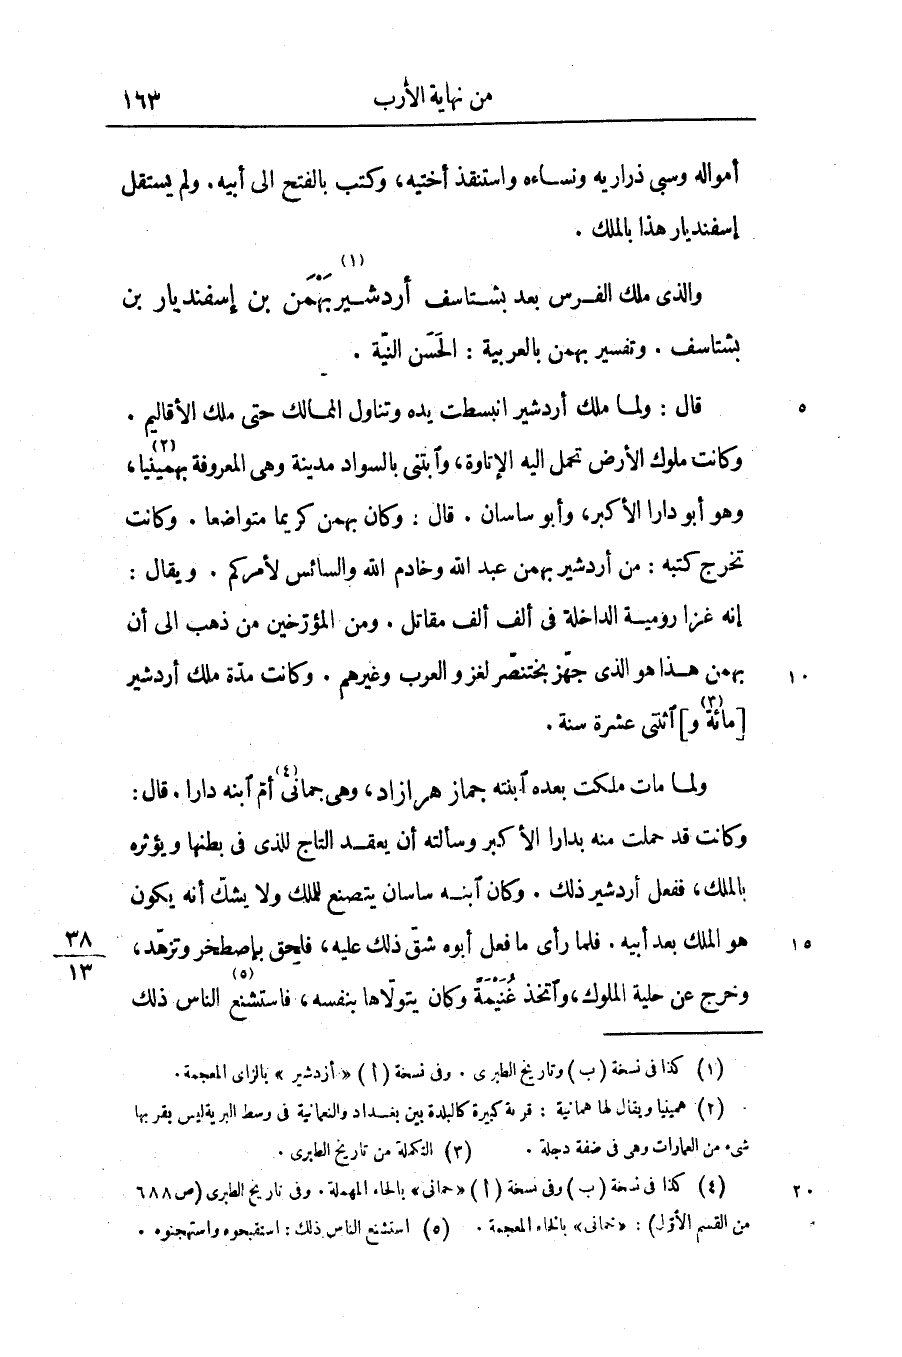 من نهاية الأرب ١٦٣
أمواله وسبى ذراريه ونساءه واستنقذ أختيه، وكتب بالفتح الى أبيه. ولم يستقل
إسفنديار هذا بالملك .
والذى ملك الفرس بعد بشتاسف أردشير بَهْمَن (١) بن إسفنديار بن
بشتاسف . وتفسير بهمن بالعربية : الحَسَن النيّة .
٥ قال : ولما ملك أردشير انبسطت يده وتناول الممالك حتى ملك الأقاليم .
وكانت ملوك الأرض تحمل اليه الإتاوة، وٱبتنى بالسواد مدينة وهى المعروفة بهمينيا (٢)،
وهو أبو دارا الأكبر، وأبو ساسان . قال : وكان بهمن كريما متواضعا . وكانت
تخرج كتبه : من أردشير بهمن عبد الله وخادم الله والسائس لأمركم . ويقال :
إنه غزا رومية الداخلة فى ألف ألف مقاتل . ومن المؤرّخين من ذهب الى أن
١٠ بهمن هذا هو الذى جهّز بختنصّر لغزو العرب وغيرهم . وكانت مدّة ملك أردشير
[مائة (٣) و] ٱثنتى عشرة سنة .
ولما مات ملكت بعده ٱبنته جماز هرازاد، وهى جمانى (٤) أمّ ٱبنه دارا . قال :
وكانت قد حملت منه بدارا الأكبر وسألته أن يعقد التاج للذى فى بطنها ويؤثره
بالملك، ففعل أردشير ذلك . وكان ٱبنه ساسان يتصنع للملك ولا يشكّ أنه يكون
١٥ هو الملك بعد أبيه . فلما رأى ما فعل أبوه شقّ ذلك عليه، فلحق بإصطخر وتزهّد،
٣٨
١٣
وخرج عن حلية الملوك، وٱتخذ غُنَيْمَةً وكان يتولّاها بنفسه، فاستشنع (٥) الناس ذلك
(١) كذا فى نسخة (ب) وتاريخ الطبرى . وفى نسخة (أ) « أزدشير » بالزاى المعجمة .
(٢) همينيا ويقال لها همانية : قرية كبيرة كالبلدة بين بغداد والنعمانية فى وسط البرية ليس بقربها
شىء من العمارات وهى فى ضفة دجلة . (٣) التكملة من تاريخ الطبرى .
٢٠ (٤) كذا فى نسخة (ب) وفى نسخة (أ) «حمانى» بالحاء المهملة . وفى تاريخ الطبرى (ص ٦٨٨
من القسم الأوّل) : «خمانى» بالخاء المعجمة . (٥) استشنع الناس ذلك : استقبحوه واستهجنوه .